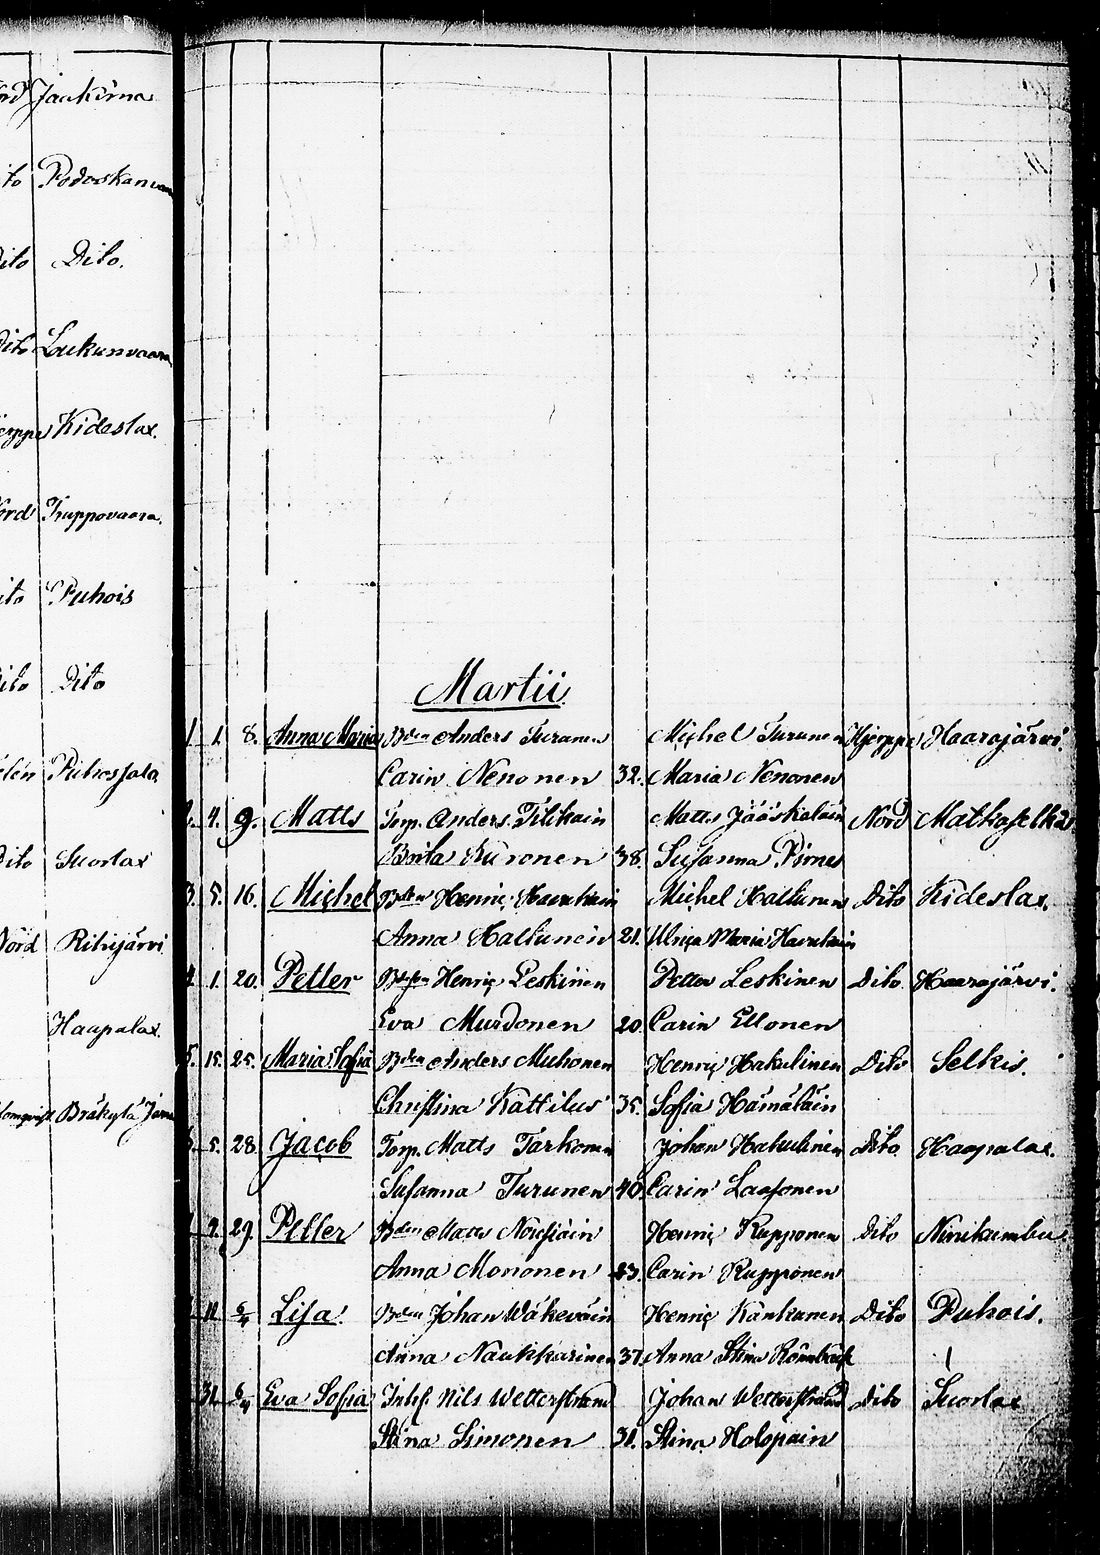 Jaakima
Podoskanvaa
Dito Dito.
Dito Loukunvaara
Kideslax.
Nord Truppovaara.
Dito Puhois
Dito Dito
Dito Suorlax
Nord Riihijärvi
Haapalax.
Martii
1 1. 8. Anna Maria Bden Anders Turunen Michel Turunen Kjerppe Haarajärvi.
Carin Nenonen 32. Maria Nenonen
2. 4. 9. Matts Torp. Anders Tilikain Matts Jääskeläin Nord Matkaselkä
Brita Kuronen 38. Susanna Pirnes
3. 5. 16. Michel Bden Henric Havukain Michel Haltunen Dito Kideslax.
Anna Haltunen 21. Ulrica Maria Havukain
4. 1. 20. Petter Henric Leskinen Petter Leskinen Dito Haarajärvi.
Eva Murdonen 20. Carin Ellonen
5. 15. 25. Maria Sofia Bden Anders Muhonen Henric Hakulinen Dito Selkis.
Christina Kattilus 35. Sofia Hämäläin
5. 28. Jacob Torp. Matts Tarkonen Johan Hakulinen Dito Haapalax.
Susanna Turunen 40. Carin Laasonen
29. Petter Bden Matts Nousiäin Henric Rupponen Dito Niinikumbu
Anna Mononen 23. Carin Rupponen
11 5/4 Lisa Bden Johan Wäkeväin Henric Känkänen Dito Puhois.
Anna Naukkarinen 37. Anna Stina Rönnbäck
31. 5/4 Eva Sofia Inhs. Nils Wetterstrand Johan Wetterstrand Dito Suorlax
Stina Simonen 31. Stina Holopain